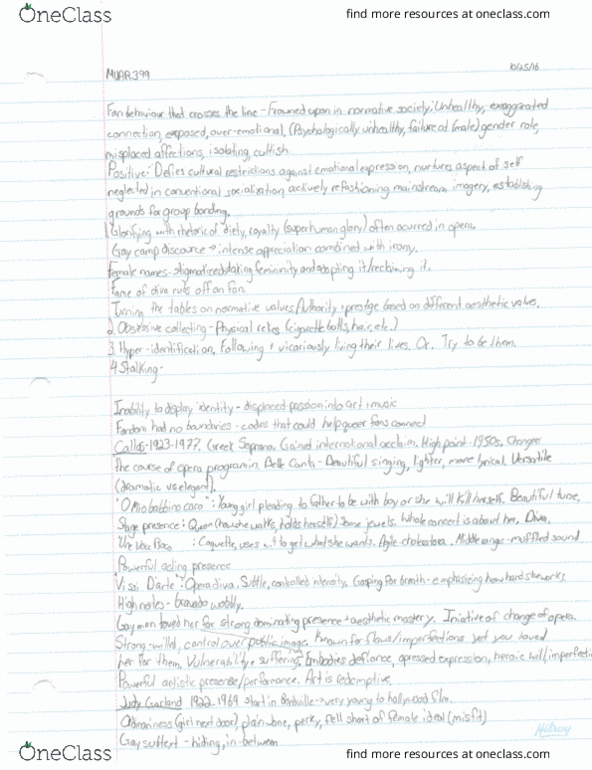 OneClass
find more resources at oneclass.com
MUAR 399
10/25/16
Fan behaviour that crosses the line - Frowned upon in normative society: Unhealthy, exaggerated
connection, exposed, over-emotional. (Psychologically unhealthy, failure of (male) gender role,
misplaced affections, isolating, cultish
Positive: Defies cultural restrictions against emotional expression, nurtures aspect of self
neglected in conventional socialization, actively refashioning mainstream imagery, establishing
grounds for group bonding.
1. Glorifying with rhetoric of diety, royalty (superhuman glory) often ocurred in opera.
Gay camp discource → intense appreciation combined with irony.
Female names - stigmatized, taking femininity and adopting it/reclaiming it.
Fame of diva rubs off on fan
Turning the tables on normative values/Authority + prestige based on different aesthetic values.
2. Obsessive collecting - Physical relics (cigarette butts, hair, etc.)
3. Hyper-identification, Following + vicariously living their lives. Or. Try to be them.
4 Stalking -
Inability to display identity - displaced passion into art + music
Fandom had no boundaries - codes that could help queer fans connect
Callas - 1923-1977. Greek Soprano. Gained international acclaim. High point - 1950s. Changed
the course of opera programin. Belle Canto - Beautiful singing, lighter, more lyrical. Versatile
(dramatic vs elegant).
"O Mio babbino caro": Young girl pleading to father to be with boy or she will kill herself. Beautiful tune,
Stage presence: Queen (how she walks, holds herself) Same jewels. Whole concert is about her. Diva.
Una Voce Poco : Coquette, uses to get what she wants. Agile. Middle range - muffled sound
Powerful acting presence
"Vissi D'arte": Opera diva. Subtle, controlled intensity. Gasping for breath - emphasizing how hard she works.
High notes - wobbly.
Gay men loved her for strong dominating presence + aesthetic mastery. of change of opera.
Strong-willed, control over public image. Known for flaws/imperfections yet you loved
her for them. Vulnerability + suffering. Embodies defiance, opressed expression, heroic will/imperfecti
Powerful artistic presence/performance. Art is redemptive.
Judy Garland 1922-1969 start in very young to hollywood film.
Ordinariness (girl next door) plain Jane, perky, fell short of female ideal (misfit)
Gay subtext - hiding, in-between
Hilroy
OneClass
find more resources at oneclass.com